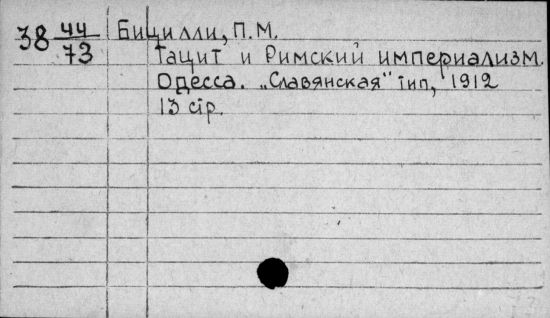 38 44/73 Бицилли, П.М.
Тацит и Римский империализм.
Одесса. „Славянская" тип, 1912
13 стр.